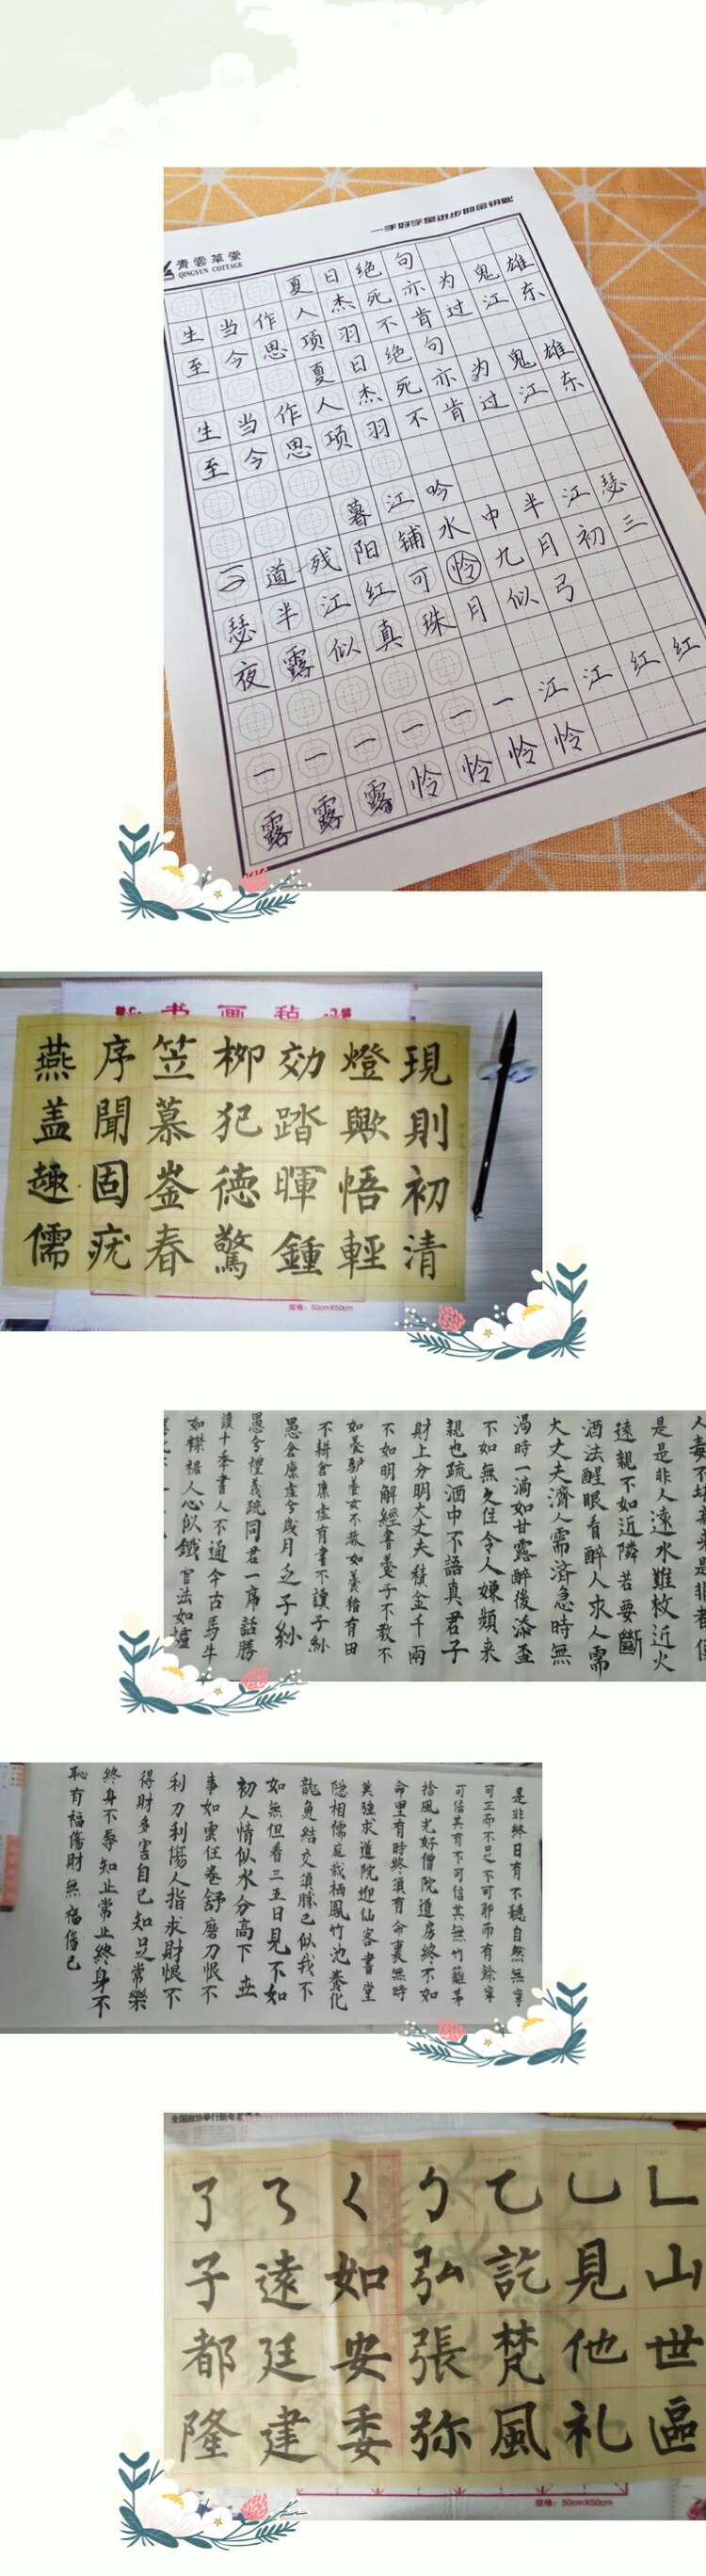 一手好字是进步的金钥匙
青雲草堂
QINGYUN COTTAGE
夏日绝句
生当作人杰死亦为鬼雄
至今思项羽不肯过江东
夏日绝句
生当作人杰死亦为鬼雄
至今思项羽不肯过江东
暮江吟
道残阳铺水中半江瑟
瑟半江红可怜九月初三
夜露似真珠月似弓
一一一一一一江江红红
露露露怜怜怜怜
书画毡
現則初清
燈歟悟輕
効踏暉鍾
柳犯徳驚
笠慕崟春
序聞固疣
燕盖趣儒
规格：50cmX50cm
是是非人遠水難救近火
遠親不如近隣若要斷
酒法醒眼看醉人求人需
大丈夫濟人需済急時無
渴時一滴如甘露醉後添盃
不如無久住令人嫌頻来
親也疏酒中不語真君子
財上分明大丈夫積金千兩
不如明解經書養子不教不
如養驴養女不教如養猪有田
不耕倉廩虛有書不讀子紗
愚倉廩虛兮歲月乏子紗
愚兮禮義疏同君一席話勝
讀十季書人不通今古馬牛
如襟裾人心似鐵官法如爐
是非終日有不聽自然無寧
可正而不足不可邪而有餘寧
可信其有不可信其無竹籬茅
捨風光好僧院道房終不如
命里有時終須有命裏無時
莫強求道院迎仙客書堂
隱相儒庭栽栖鳳竹池養化
龍魚結交須勝己似我不
如無但看三五日見不如
初人情似水分高下世
事如雲任卷舒磨刀恨不
利刀利傷人指求財恨不
得財多害自己知足常樂
終身不辱知止常止終身不
恥有福傷財無福傷己
全国政协举行新年
乚山世區
乚見他礼
乙訖梵風
弘張弥
く如安委
遠廷建
了子都隆
规格：50cmX50cm